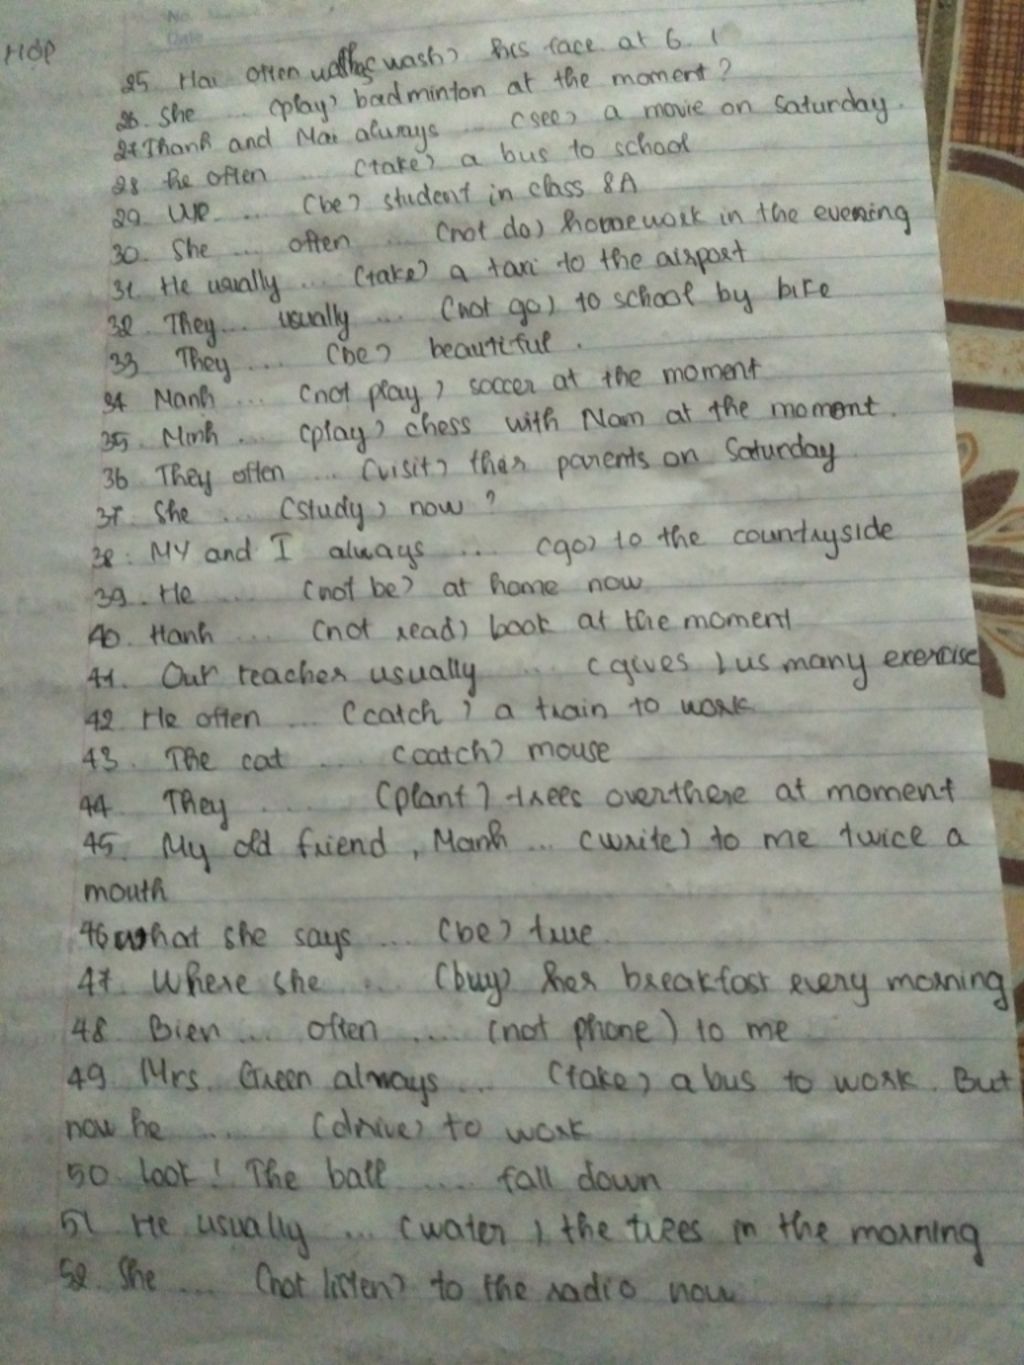 No.
Date
HOP
25. Hai often (wash) his face at 6.
26. She ... (play) badminton at the moment?
27 Thanh and Mai always ... (see) a movie on Saturday.
28 he often ... (take) a bus to school
29 We ... (be) student in class 8A
30. She ... often ... (not do) homework in the evening
31 He usually ... (take) a taxi to the airport
32 They ... usually ... (not go) to school by bike
33 They ... (be) beautiful.
34 Manh ... (not play) soccer at the moment
35. Minh ... (play) chess with Nam at the moment.
36 They often ... (visit) their parents on Saturday
37. She ... (study) now?
38. MY and I always ... (go) to the countryside
39. He ... (not be) at home now
40. Hanh ... (not read) book at the moment
41. Our teacher usually ... (gives) us many exercise
42 He often ... (catch) a train to work
43. The cat ... (catch) mouse
44 They ... (plant) trees overthere at moment
45. My old friend, Manh ... (write) to me twice a
mouth
46 what she says ... (be) true
47. Where she ... (buy) her breakfast every morning
48 Bien ... often .... (not phone) to me
49 Mrs. Green always ... (take) a bus to work. But
now he ... (drive) to work
50 look! The ball .... fall down
51 He usually ... (water) the trees in the morning
52. She ... (not listen) to the radio now